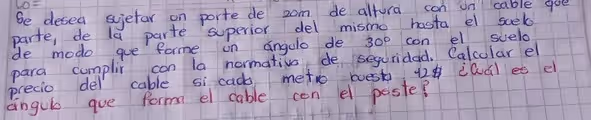 Lo=
Se desea sujetar un porte de 20m de altura con un cable que
parte, de la parte superior del mismo hasta el suelo
de modo que forme un ángulo de 30° con el suelo
para cumplir con la normativa de seguridad. Calcular el
precio del cable si cada metro cuesta 12$ ¿Cuál es el
ángulo que forma el cable con el poste?